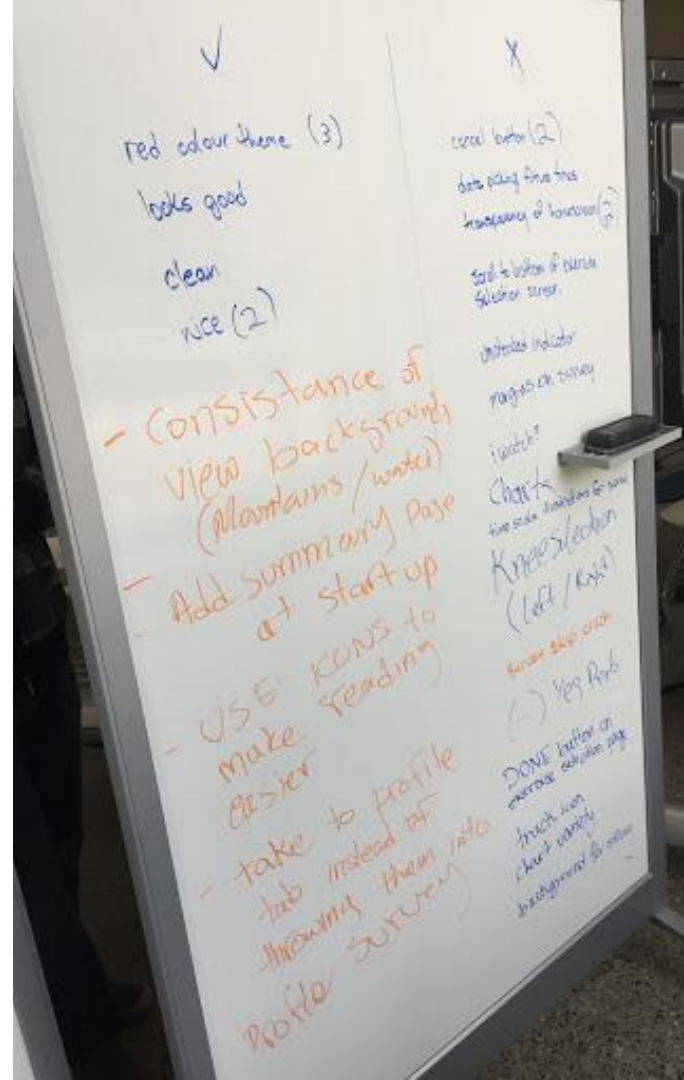 ✓
red colour theme (3)
looks good
clean
nice (2)
- Consistance of
view background
(Mountains / water)
- Add summary page
at start up
- USE ICONS to
make reading
easier
- take to profile
tab instead of
throwing them into
profile survey
X
cancel button (2)
date picking future times
transparency of homescreen (2)
scroll to bottom of exercise
selection screen
indicator
margins on survey
iwatch?
Charts
time scale for
Knee selection
(left / Right)
survey skip crash
DONE button on
exercise selection page
track icon
chart variety
background for